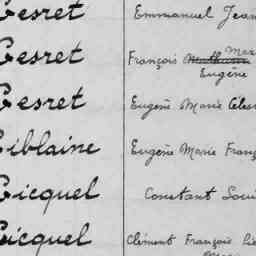 Gesret Emmanuel Jean
Gesret François Mar
Eugène
Gesret Eugène Marie Céles
Giblaine Eugène Marie Franç
Gicquel Constant Loui
Gicquel Clément François Pie
Mari